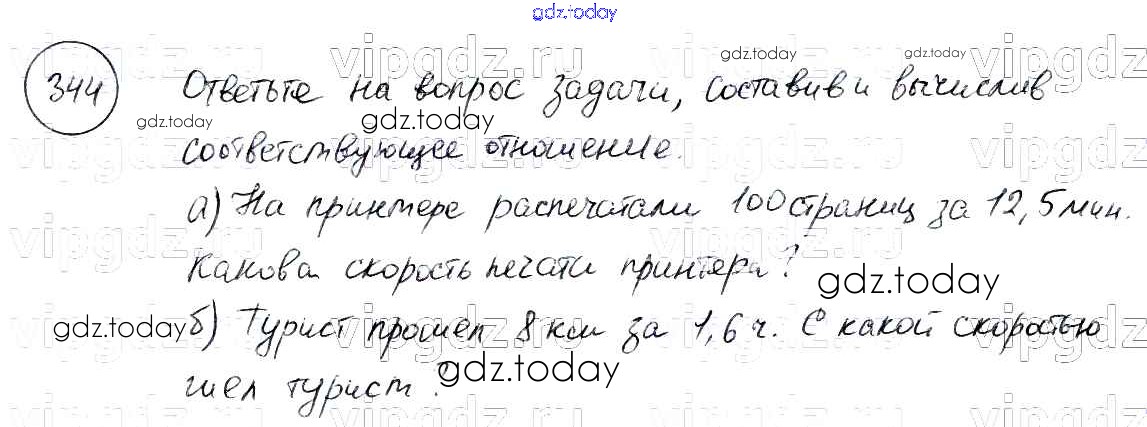 gdz.today
344 Ответьте на вопрос задачи, составив и вычислив
соответствующее отношение.
а) На принтере распечатали 100 страниц за 12,5 мин.
Какова скорость печати принтера?
б) Турист прошел 8 км за 1,6 ч. С какой скоростью
шел турист?
vipgdz.ru
gdz.today